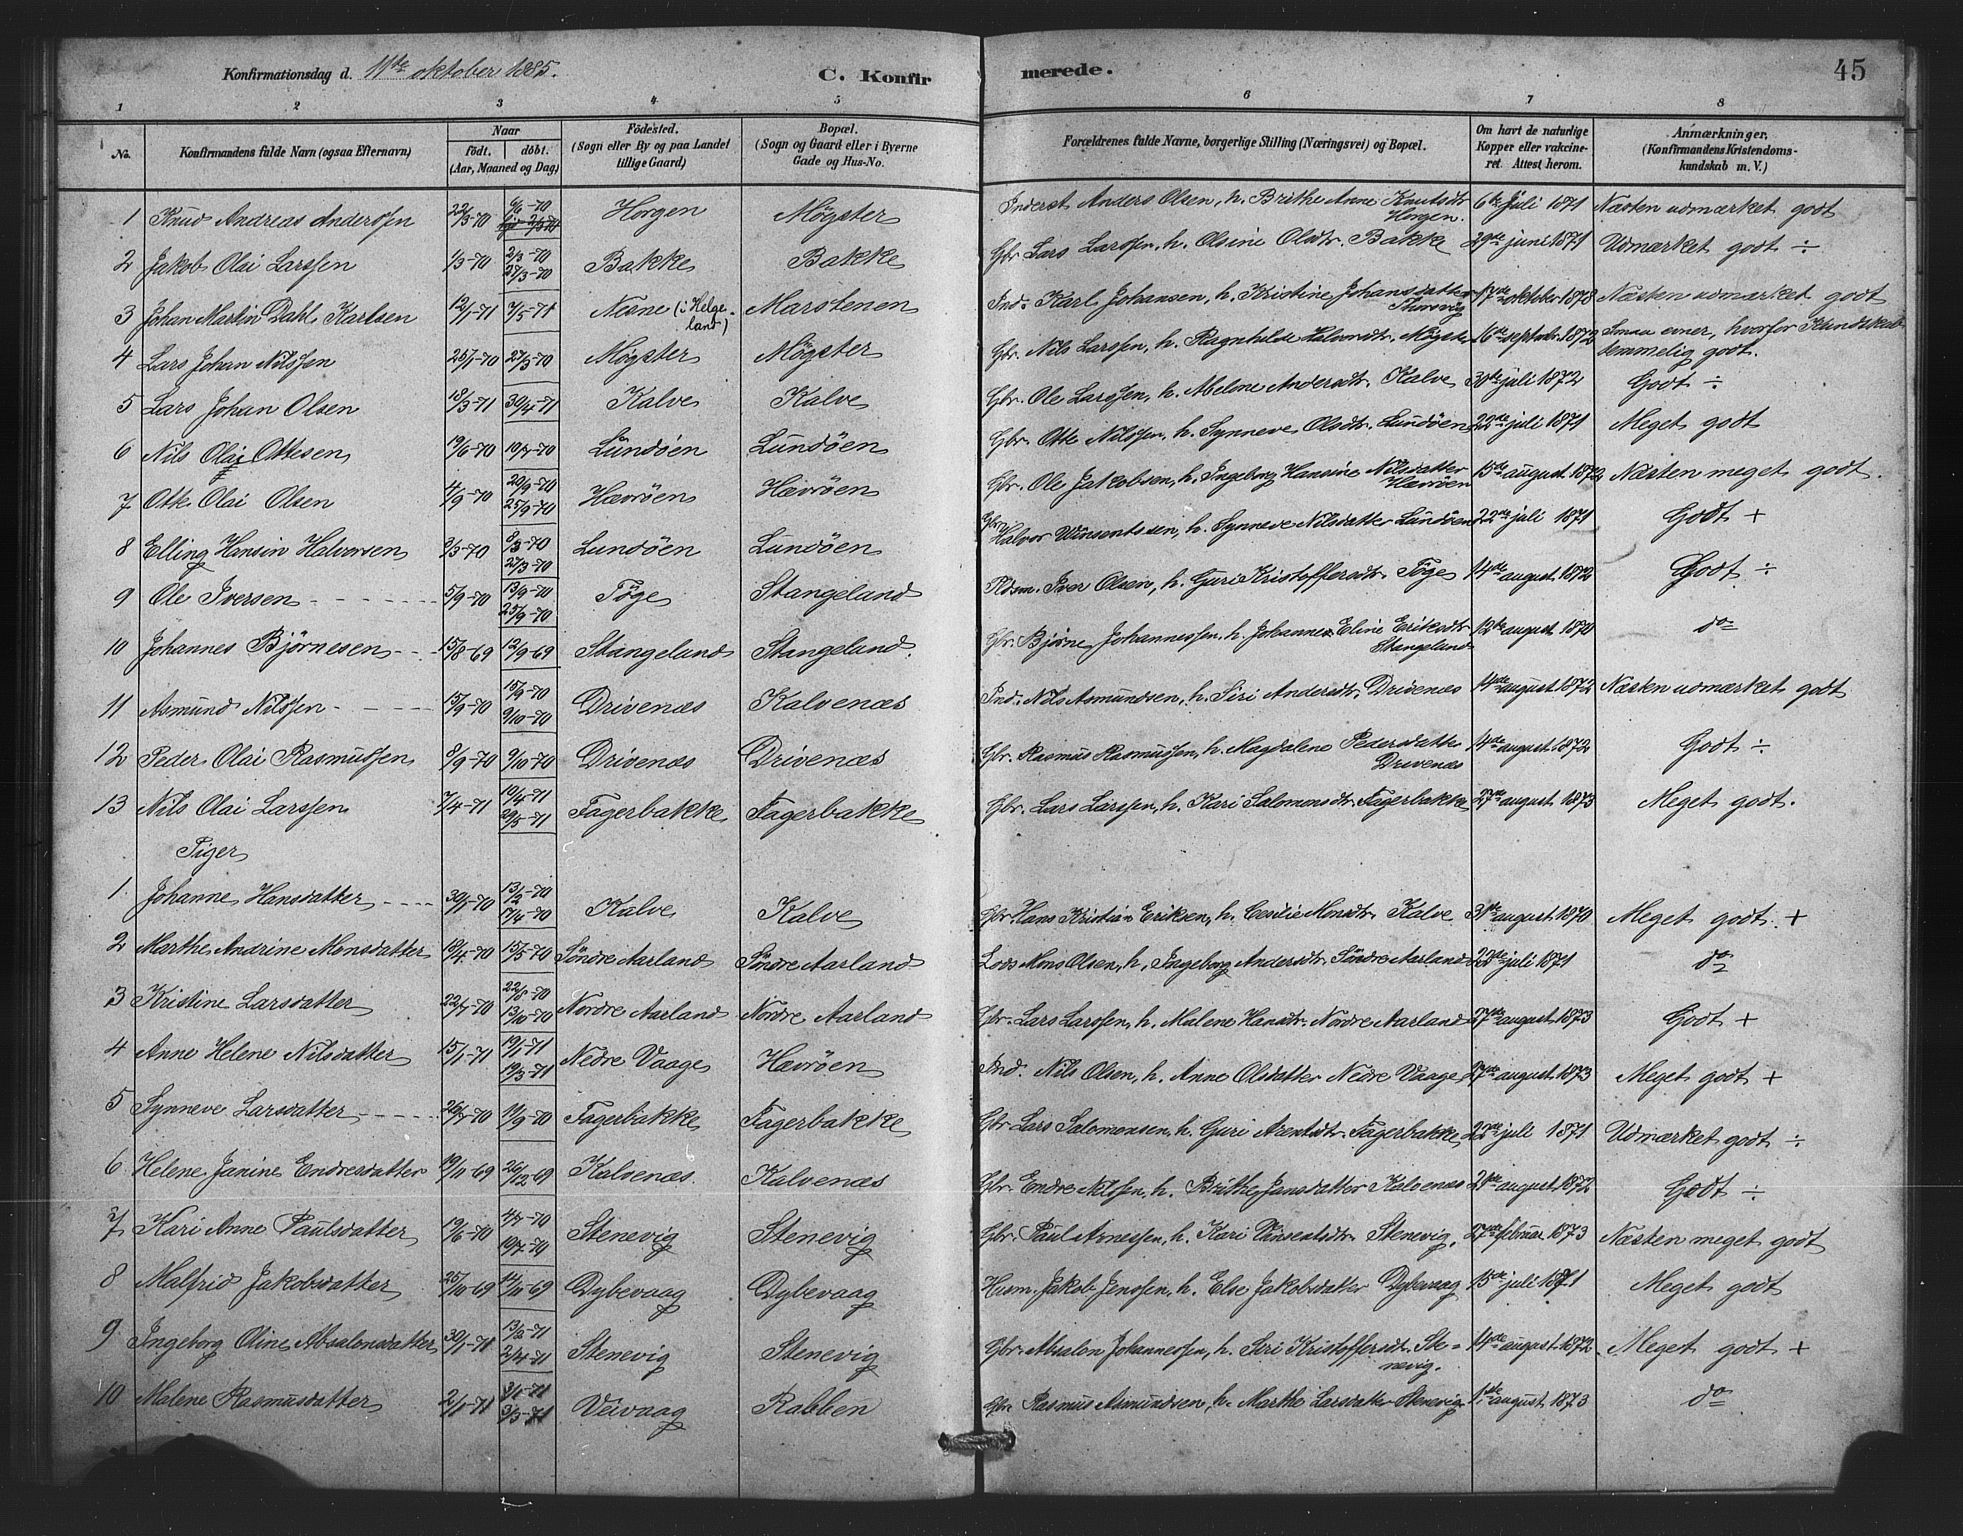 Konfirmationsdag d. 11te oktober 1885.
C. Konfirmerede.
45
1 2 3 4 5 6 7 8
No.
Konfirmandens fulde Navn (ogsaa Efternavn)
Naar
födt. döbt.
(Aar, Maaned og Dag)
Födested.
(Sogn eller By og paa Landet
tillige Gaard)
Bopæl.
(Sogn og Gaard eller i Byerne
Gade og Hus-No.
Forældrenes fulde Navne, borgerlige Stilling (Næringsvei) og Bopæl.
Om havt de naturlige
Kopper eller vakcine-
ret. Attest herom.
Anmærkninger.
(Konfirmandens Kristendoms-
kundskab m. V.)
1 Knud Andreas Anderssen 22/3-70 6/6-70 Horgen Møgster Inderst Anders Olsen, h. Brithe Anne Knutsdtr Horgen. 6te Juli 1871 Næsten udmærket godt
2 Jakob Olai Larssen 1/3-70 2/3-70 27/3-70 Bakke Bakke Gbr. Lars Larssen, h. Olsine Olsdtr. Bakke 29de juni 1871 Udmærket godt ÷
3 Johan Martin Dahl Karlsen 12/1-71 7/5-71 Nesne (i Helgeland) Marstenen Ind. Karl Johansen, h. Kristine Johansdatter 17de oktober 1878 Næsten udmærket godt
4 Lars Johan Nilssen 25/1-70 27/3-70 Møgster Møgster Gbr. Nils Larssen, h. Ragnhilde Halvorsdtr. Møgst. 16de septbr. 1872 Smaa evner, hvorfor Kundskab temmelig godt.
5 Lars Johan Olsen 18/3-71 30/4-71 Kalve Kalve Gbr. Ole Larssen, h. Malene Andersdtr. Kalve 30te juli 1872 Godt ÷
6 Nils Olai Ottesen 19/6-70 10/7-70 Lundøen Lundøen Gbr. Otte Nilssen, h. Synneve Olsdtr. Lundøen 22de juli 1871 Meget godt
7 Otte Olai Olsen 4/9-70 20/9-70 25/9-70 Hævrøen Hævrøen Gbr. Ole Jakobsen, h. Ingeborg Hansine Nilsdatter Hævrøen 15de august 1872 Næsten meget godt.
8 Elling Hansin Halvorsen 2/3-70 8/3-70 27/3-70 Lundøen Lundøen Gbr. Halvor Winsentssen, h. Synneve Nilsdatter Lundøen 22de juli 1871 Godt +
9 Ole Iversen 5/9-70 13/9-70 25/9-70 Töge Stangeland Pldsm. Iver Olsen, h. Guri Kristoffersdtr. Töge 14de august 1872 Godt ÷
10 Johannes Bjørnesen 15/8-69 12/9-69 Stangeland Stangeland. Gbr. Bjørne Johannessen, h. Johanne Eline Eriksdtr. Stangeland 12te august 1870 do
11 Asmund Nilssen 15/9-70 15/9-70 9/10-70 Drivenæs Kalvenæs Ind. Nils Asmundsen, h. Siri Andersdtr. Drivenæs 14de august 1872 Næsten udmærket godt
12 Peder Olai Rasmussen 8/9-70 9/10-70 Drivenæs Drivenæs Gbr. Rasmus Rasmussen, h. Magdalene Pedersdatter Drivenæs 14de august 1872 Godt ÷
13 Nils Olai Larssen 7/4-71 10/4-71 29/5-71 Fagerbakke Fagerbakke Gbr. Lars Larssen, h. Kari Salomonsdtr. Fagerbakke 27de august 1873 Meget godt.
Piger
1 Johanne Hansdatter 30/1-70 13/2-70 17/4-70 Kalve Kalve Gbr. Hans Kristian Eriksen, h. Cecilie Monsdtr. Kalve 31te august 1870 Meget godt. +
2 Marthe Andrine Monsdatter 18/4-70 15/5-70 Söndre Aarland Söndre Aarland Lods Mons Olsen, h. Ingeborg Andersdtr. Söndre Aarland 22de juli 1871 do
3 Kristine Larsdatter 22/7-70 22/8-70 13/10-70 Nordre Aarland Nordre Aarland Gbr. Lars Larssen, h. Malene Hansdtr. Nordre Aarland 27de august 1873 Godt +
4 Anne Helene Nilsdatter 15/1-71 19/1-71 19/3-71 Nedre Vaage Hævrøen Ind. Nils Olsen, h. Anne Olsdatter Nedre Vaage 27de august 1873 Meget godt +
5 Synneve Larsdatter 26/7-70 11/9-70 Fagerbakke Fagerbakke Gbr. Lars Salomonsen, h. Guri Arentsdtr. Fagerbakke 22de juli 1871 Udmærket godt ÷
6 Helene Janine Endresdatter 19/11-69 26/12-69 Kalvenæs. Kalvenæs Gbr. Endre Nilssen, h. Brithe Jansdatter Kalvenæs 21de august 1872 Godt ÷
7 Kari Anne Paulsdatter 19/6-70 4/7-70 10/7-70 Stenevig Stenevig Gbr. Paul Arnessen, h. Kari Vinsentsdtr. Stenevig. 27de februar 1873 Næsten meget godt
8 Malfrid Jakobsdatter 25/10-69 14/10-69 Dybevaag Dybevaag Husm. Jakob Jenssen, h. Else Jakobsdatter Dybevaag 15de juli 1871 Meget godt
9 Ingeborg Oline Absalonsdatter 30/1-71 13/2-71 2/4-71 Stenevig Stenevig Gbr. Absalon Johannessen, h. Siri Kristoffersdtr. Stenevig. 14de august 1872 Meget godt +
10 Malene Rasmusdatter 2/1-71 3/1-71 3/3-71 Veivaag Rabben Gbr. Rasmus Asmundsen, h. Marthe Larsdatter Stenevig 1ste august 1873 do